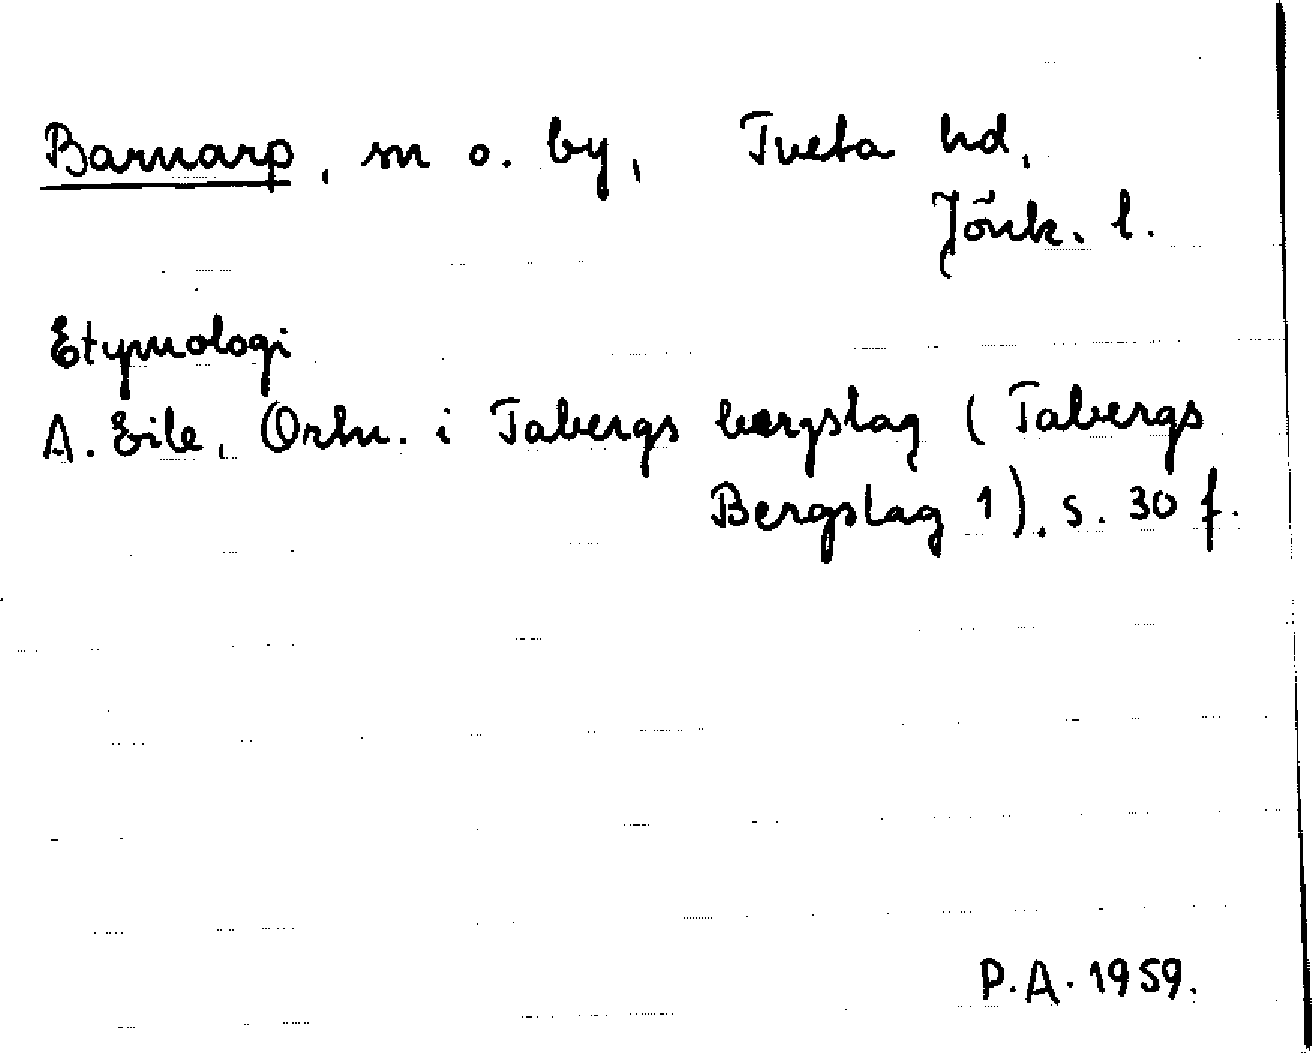 Barnarp, sn o. by, Tveta hd,
Jönk. l.
Etymologi
A. Eile, Ortn. i Tabergs bergslag (Tabergs
Bergslag 1), s. 30 f.
P.A. 1959.